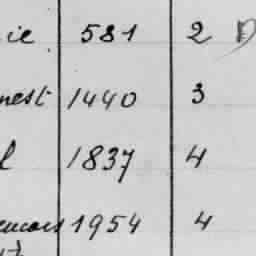 ie 581 2
nest 1440 3
l 1837 4
1954 4